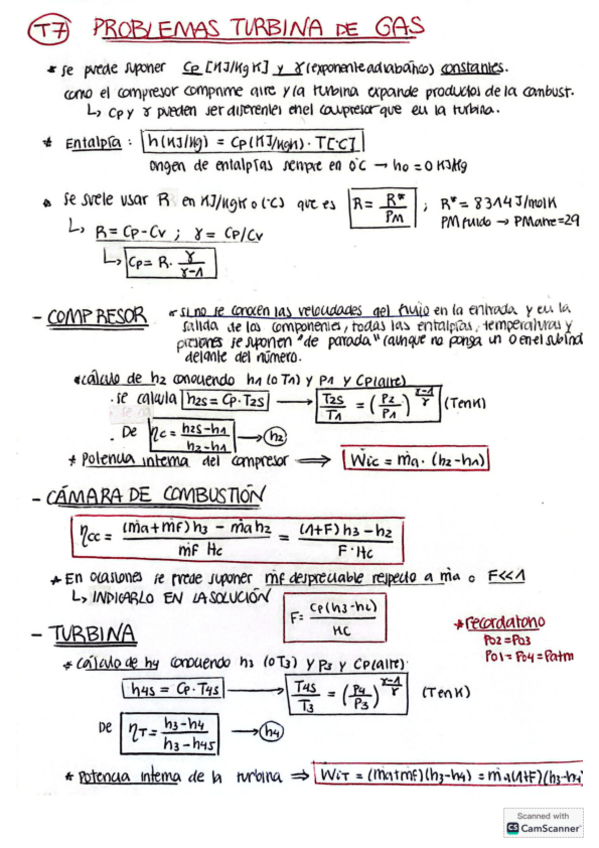 T7 PROBLEMAS TURBINA DE GAS
* se puede suponer Cp [KJ/Kg K] y γ (exponente adiabático) constantes.
como el compresor comprime aire y la turbina expande productos de la combust.
↳ Cp y γ pueden ser diferentes en el compresor que en la turbina.
* Entalpía: h(KJ/Kg) = Cp(KJ/KgK) · T[°C]
origen de entalpías siempre en 0°C → h0 = 0 KJ/Kg
* Se suele usar R en KJ/KgK o (°C) que es R = R*/PM ; R* = 8314 J/molK
PM fluido → PMaire = 29
↳ R = Cp - Cv ; γ = Cp/Cv
↳ Cp = R · γ/(γ-1)
- COMPRESOR * si no se conocen las velocidades del flujo en la entrada y en la
salida de los componentes, todas las entalpías, temperaturas y
presiones se suponen "de parada" (aunque no ponga un 0 en el subínd
delante del número.
* cálculo de h2 conociendo h1 (o T1) y P1 y Cp(aire)
· se calcula h2s = Cp · T2s → T2s/T1 = (P2/P1)^((γ-1)/γ) (T en K)
· De ηc = (h2s-h1)/(h2-h1) → h2
* Potencia interna del compresor ⇒ Ẇic = ṁa · (h2-h1)
- CÁMARA DE COMBUSTIÓN
ηcc = ((ṁa+ṁf) h3 - ṁa h2)/(ṁf Hc) = ((1+F) h3 - h2)/(F · Hc)
* En ocasiones se puede suponer ṁf despreciable respecto a ṁa o F<<1
↳ INDICARLO EN LA SOLUCIÓN F = Cp(h3-h2)/HC
- TURBINA
* recordatorio
P02 = P03
P01 = P04 = Patm
* cálculo de h4 conociendo h3 (o T3) y P3 y Cp(aire):
h4s = Cp · T4s → T4s/T3 = (P4/P3)^((γ-1)/γ) (T en K)
De ηT = (h3-h4)/(h3-h4s) → h4
* Potencia interna de la turbina ⇒ ẆiT = (ṁa+ṁf)(h3-h4) = ṁa(1+F)(h3-h4
Scanned with
CS CamScanner